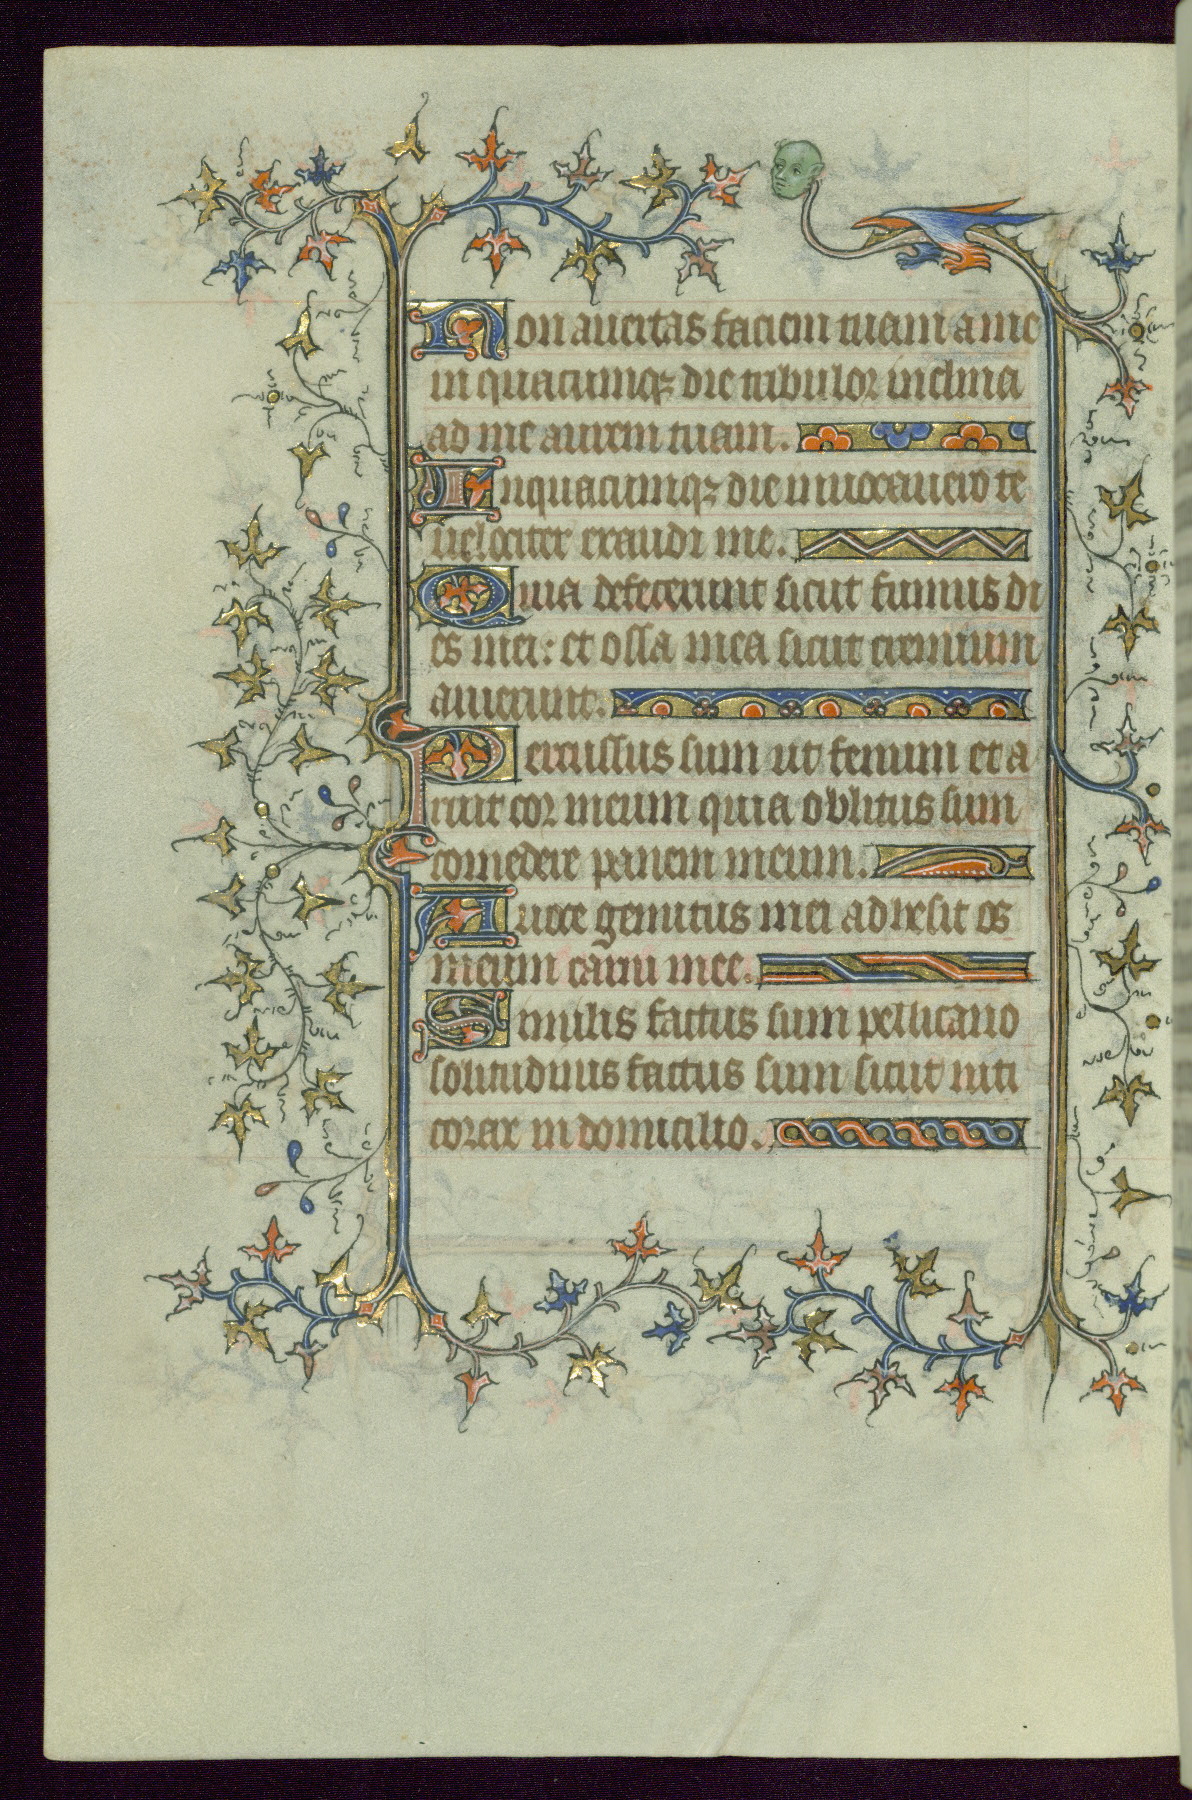 Non auertas faciem tuam a me
in quacumq; die tribulor inclina
ad me aurem tuam.
In quacumq; die inuocauero te
uelociter exaudi me.
Quia defecerunt sicut fumus di
es mei: et ossa mea sicut cremium
aruerunt.
Percussus sum ut fenum et a
ruit cor meum quia oblitus sum
comedere panem meum.
A uoce gemitus mei adhesit os
meum carni mee.
Similis factus sum pellicano
solitudinis factus sum sicut niti
corax in domicilio.